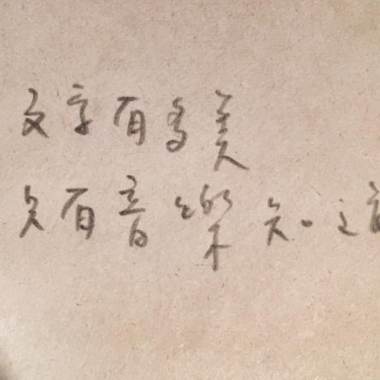 文字有多美
只有音樂知道